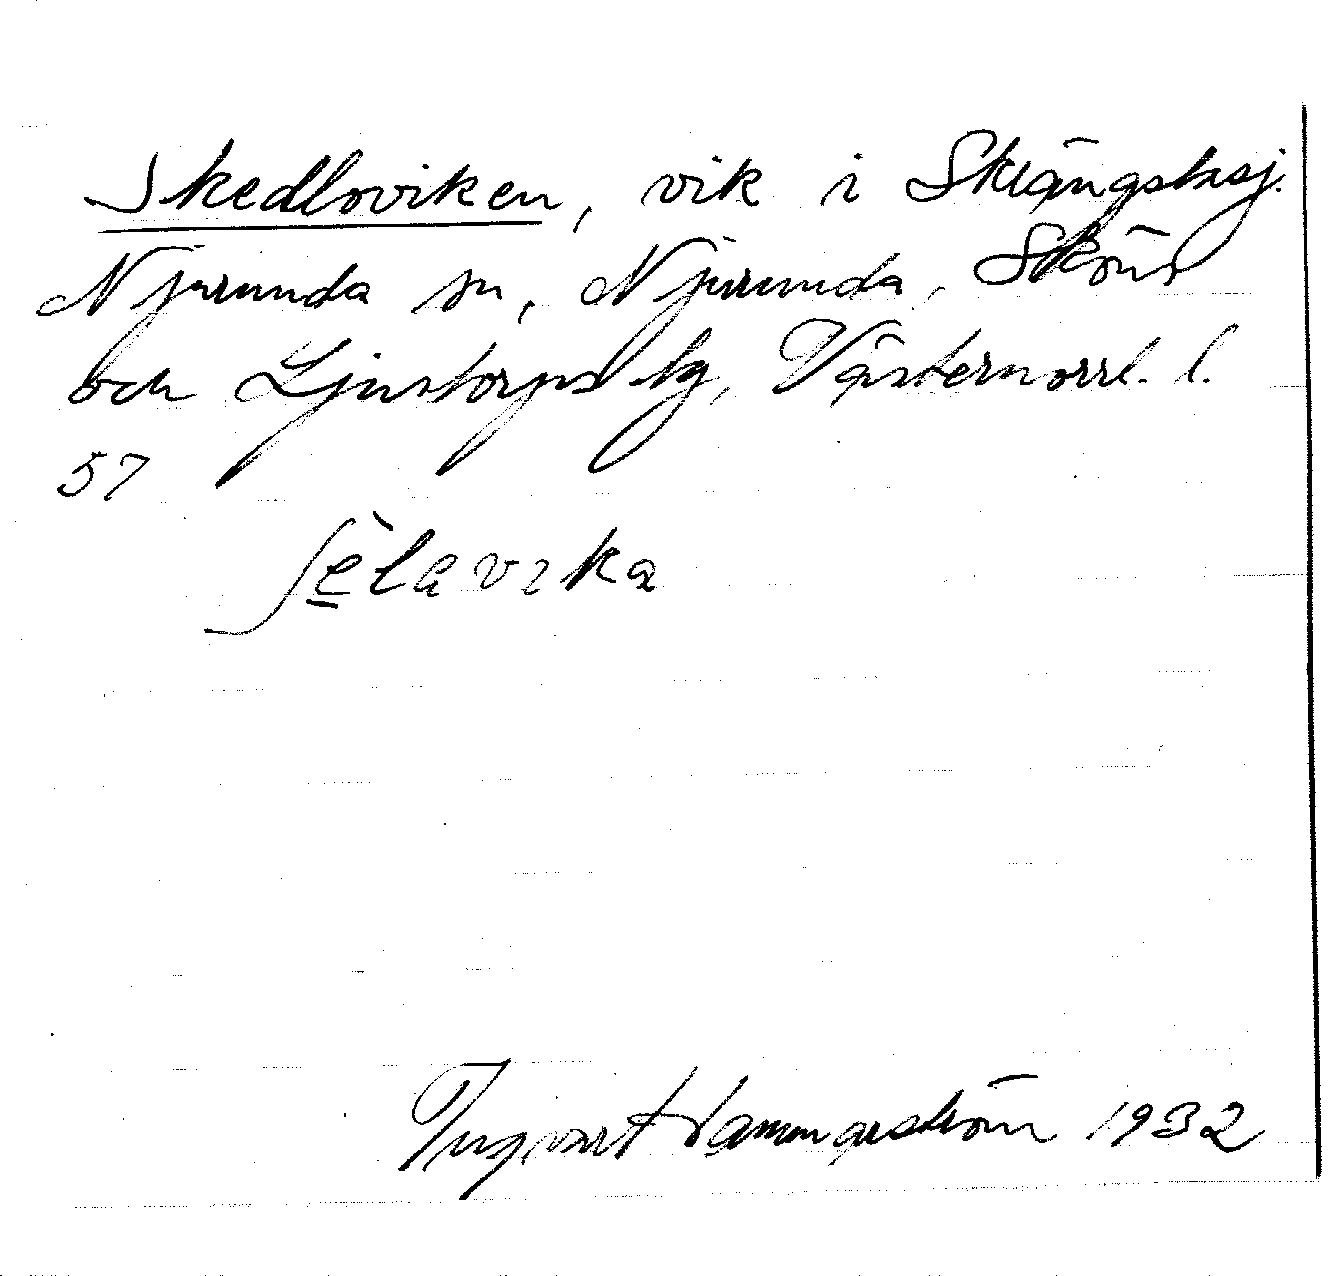 Skedloviken, vik i Sklångstasj.
Njurunda sn, Njurunda, Sköns
och Ljustorps tg, Västernorrl. l.
57
ʃèlavɩka
Ingvart Hammarström 1932